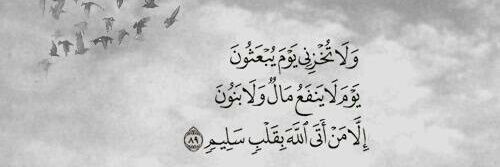 وَلَا تُخْزِنِي يَوْمَ يُبْعَثُونَ
يَوْمَ لَا يَنفَعُ مَالٌ وَلَا بَنُونَ
إِلَّا مَنْ أَتَى ٱللَّهَ بِقَلْبٍ سَلِيمٍ ٨٩